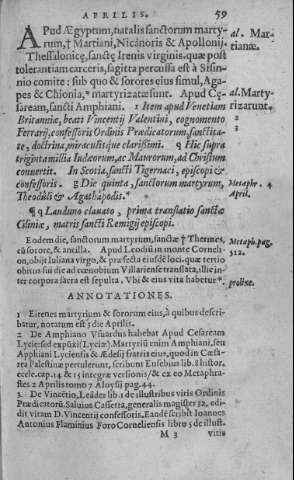 APRILIS. 59
APud Ægyptum, natalis sanctorum marty-
rum, † Martiani, Nicánoris & Apollonij. al. Mar-
Thessalonicę, sanctę Irenis virginis. quæ post tianæ.
tolerantiam carceris, sagitta percussa est à Sisin-
nio comite: sub quo & sorores eius simul, Aga-
pes & Chionia, * martyrizatæ sunt. Apud Cę- al. Marty-
saream, sancti Amphiani. 1 Item apud Venetiam rizarunt.
Britanniæ, beati Vincentij Valentini, cognomento 2
Ferrarij, confessoris Ordinis Prædicatorum, sanctita- 3
te, doctrina, miraculisque clarissimi. ¶ Hic supra
triginta millia Iudæorum, ac Maurorum, ad Christum
conuertit. In Scotia, sancti Tigernaci, episcopi &
confessoris. g Die quinta, sanctorum martyrum, Metaphr. 4
Theoduli & Agathapodis. * April.
¶ q Lauduno clauato, prima translatio sanctæ
Ciliniæ, matris sancti Remigij episcopi.
Eodem die, sanctorum martyrum, sanctæ † Thermes, Metaph. pag.
cũ sorore, & ancilla. Apud Leodiũ in monte Cornelí- 312.
on, obijt Iuliana virgo, & præfecta eiusdẽ loci. quæ tertio
obitus sui die ad cœnobium Villariense translata, illic in-
ter corpora sacra est sepulta. Vbi & eius vita habetur * prolixe.
ANNOTATIONES.
1 Eirenes martyrium & sororum eius, à quibus descri-
batur, notatum est 3 die Aprilis.
2 De Amphiano Vsuardus habebat Apud Cesaream
Lycię: sed expũxi (Lycię). Martyriũ enim Amphiani, seu
Apphiani Lyciensis & Ædesij fratris eius, quod in Cæsa-
rea Palæstinæ pertulerunt, scribunt Eusebius lib. 8 histor.
eccle. cap. 14 & 15 integræ versionis, & ex eo Metaphra-
stes 2 Aprilis tomo 7 Aloysij pag. 44.
3 De Vincẽtio, Leáder lib. 1 de illustribus viris Ordinis
Prædicatorũ. Saluius Cassetta, generalis magister 32. edi-
dit vitam D. Vincentij confessoris. Eandẽ scribit Ioannes
Antonius Flaminius Foro Corneliensis libro 5 de illust.
M 3 vitis